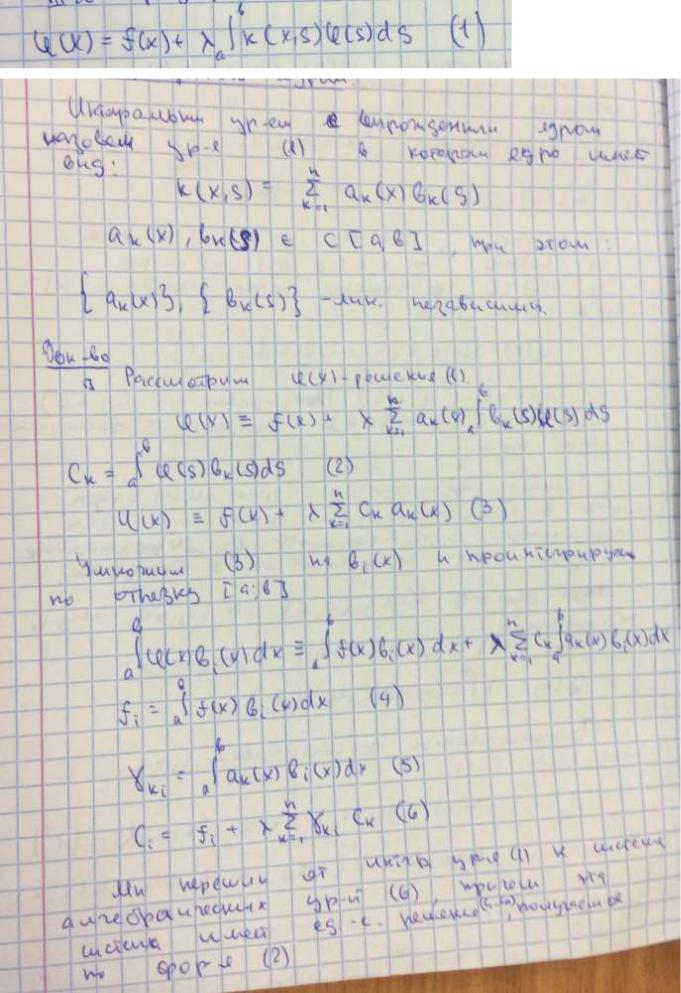 φ(x) = f(x) + λ ∫ₐᵇ k(x,s)φ(s)ds (1)
Интегральным ур-ем с вырожденным ядром
назовем ур-е (1) в котором ядро имеет
вид:
k(x,s) = Σₖ₌₁ⁿ aₖ(x)bₖ(s)
aₖ(x), bₖ(s) ∈ C[a,b], при этом:
{aₖ(x)}, {bₖ(s)} - лин. независимы.
Док-во
Рассмотрим φ(x) - решения (1)
φ(x) ≡ f(x) + λ Σₖ₌₁ⁿ aₖ(x) ∫ₐᵇ bₖ(s)φ(s)ds
Cₖ = ∫ₐᵇ φ(s)bₖ(s)ds (2)
φ(x) ≡ f(x) + λ Σₖ₌₁ⁿ Cₖ aₖ(x) (3)
Умножим (3) на bᵢ(x) и проинтегрируем
по отрезку [a;b]
∫ₐᵇ φ(x)bᵢ(x)dx ≡ ∫ₐᵇ f(x)bᵢ(x)dx + λ Σₖ₌₁ⁿ Cₖ ∫ₐᵇ aₖ(x)bᵢ(x)dx
fᵢ = ∫ₐᵇ f(x)bᵢ(x)dx (4)
γₖᵢ = ∫ₐᵇ aₖ(x)bᵢ(x)dx (5)
Cᵢ = fᵢ + λ Σₖ₌₁ⁿ γₖᵢ Cₖ (6)
Мы перешли от интегр ур-я (1) к системе
алгебраических ур-й (6), причем эта
система имеет решение получаемое
по фор-е (2)